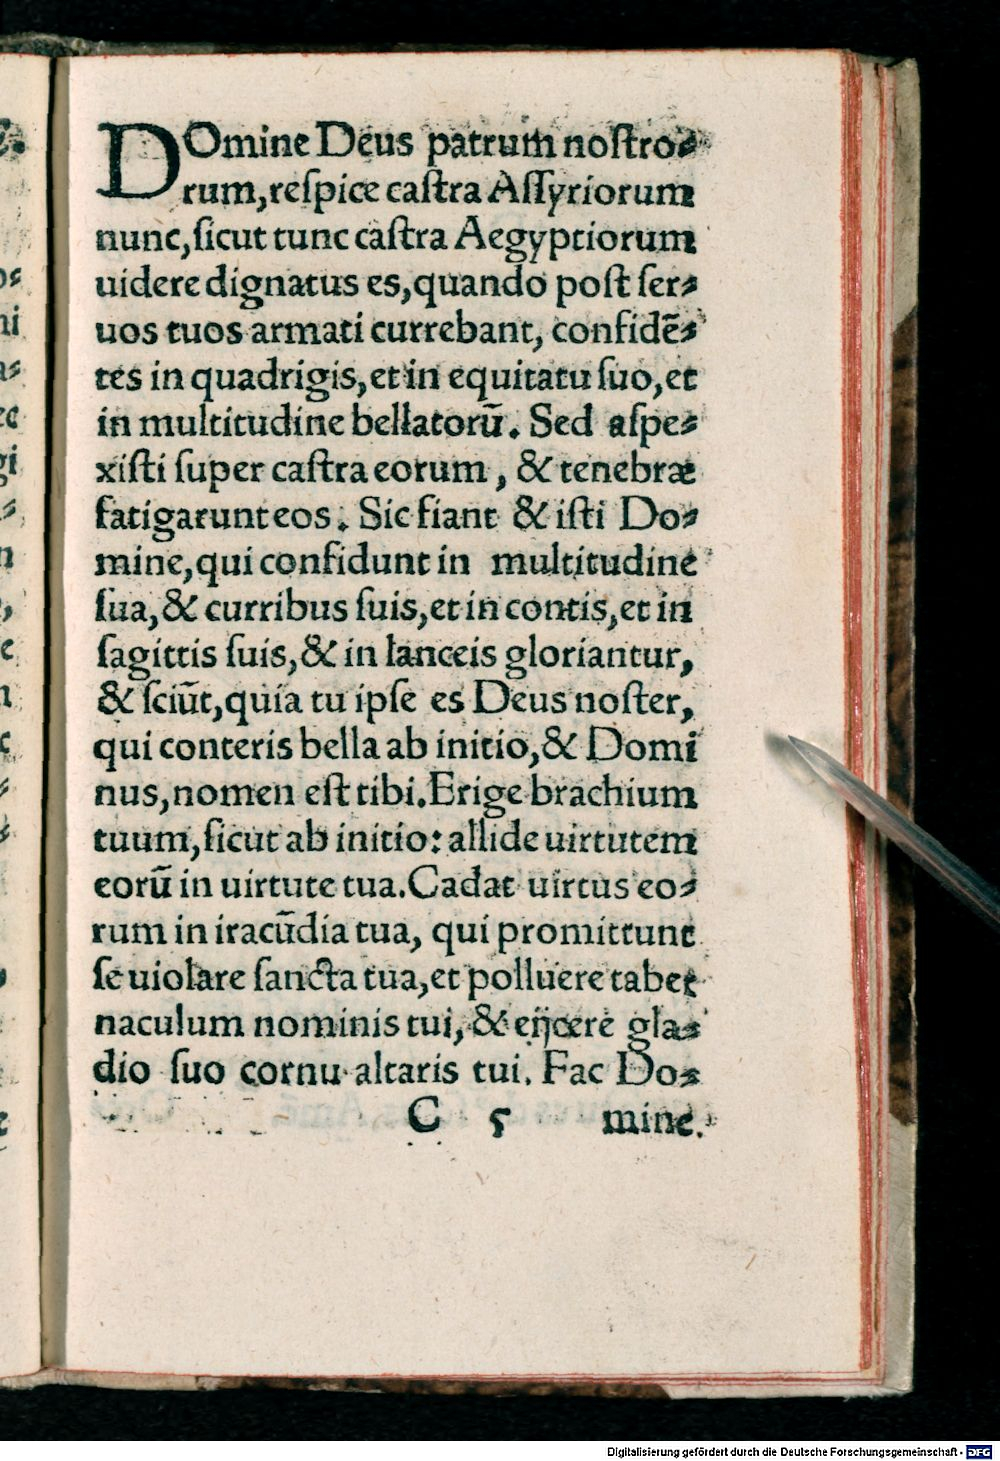 DOmine Deus patrum noſtro⸗
rum, reſpice caſtra Aſſyriorum
nunc, ſicut tunc caſtra Aegyptiorum
uidere dignatus es, quando poſt ſer⸗
uos tuos armati currebant, confidē⸗
tes in quadrigis, et in equitatu ſuo, et
in multitudine bellatorū. Sed aſpe⸗
xiſti ſuper caſtra eorum, & tenebræ
fatigarunt eos. Sic fiant & iſti Do⸗
mine, qui confidunt in multitudine
ſua, & curribus ſuis, et in contis, et in
ſagittis ſuis, & in lanceis gloriantur,
& ſciūt, quia tu ipſe es Deus noſter,
qui conteris bella ab initio, & Domi
nus, nomen eſt tibi. Erige brachium
tuum, ſicut ab initio: allide uirtutem
eorū in uirtute tua. Cadat uirtus eo⸗
rum in iracūdia tua, qui promittunt
ſe uiolare ſancta tua, et polluere taber
naculum nominis tui, & eijcere gla⸗
dio ſuo cornu altaris tui. Fac Do⸗
C 5 mine.
Digitalisierung gefördert durch die Deutsche Forschungsgemeinschaft - DFG